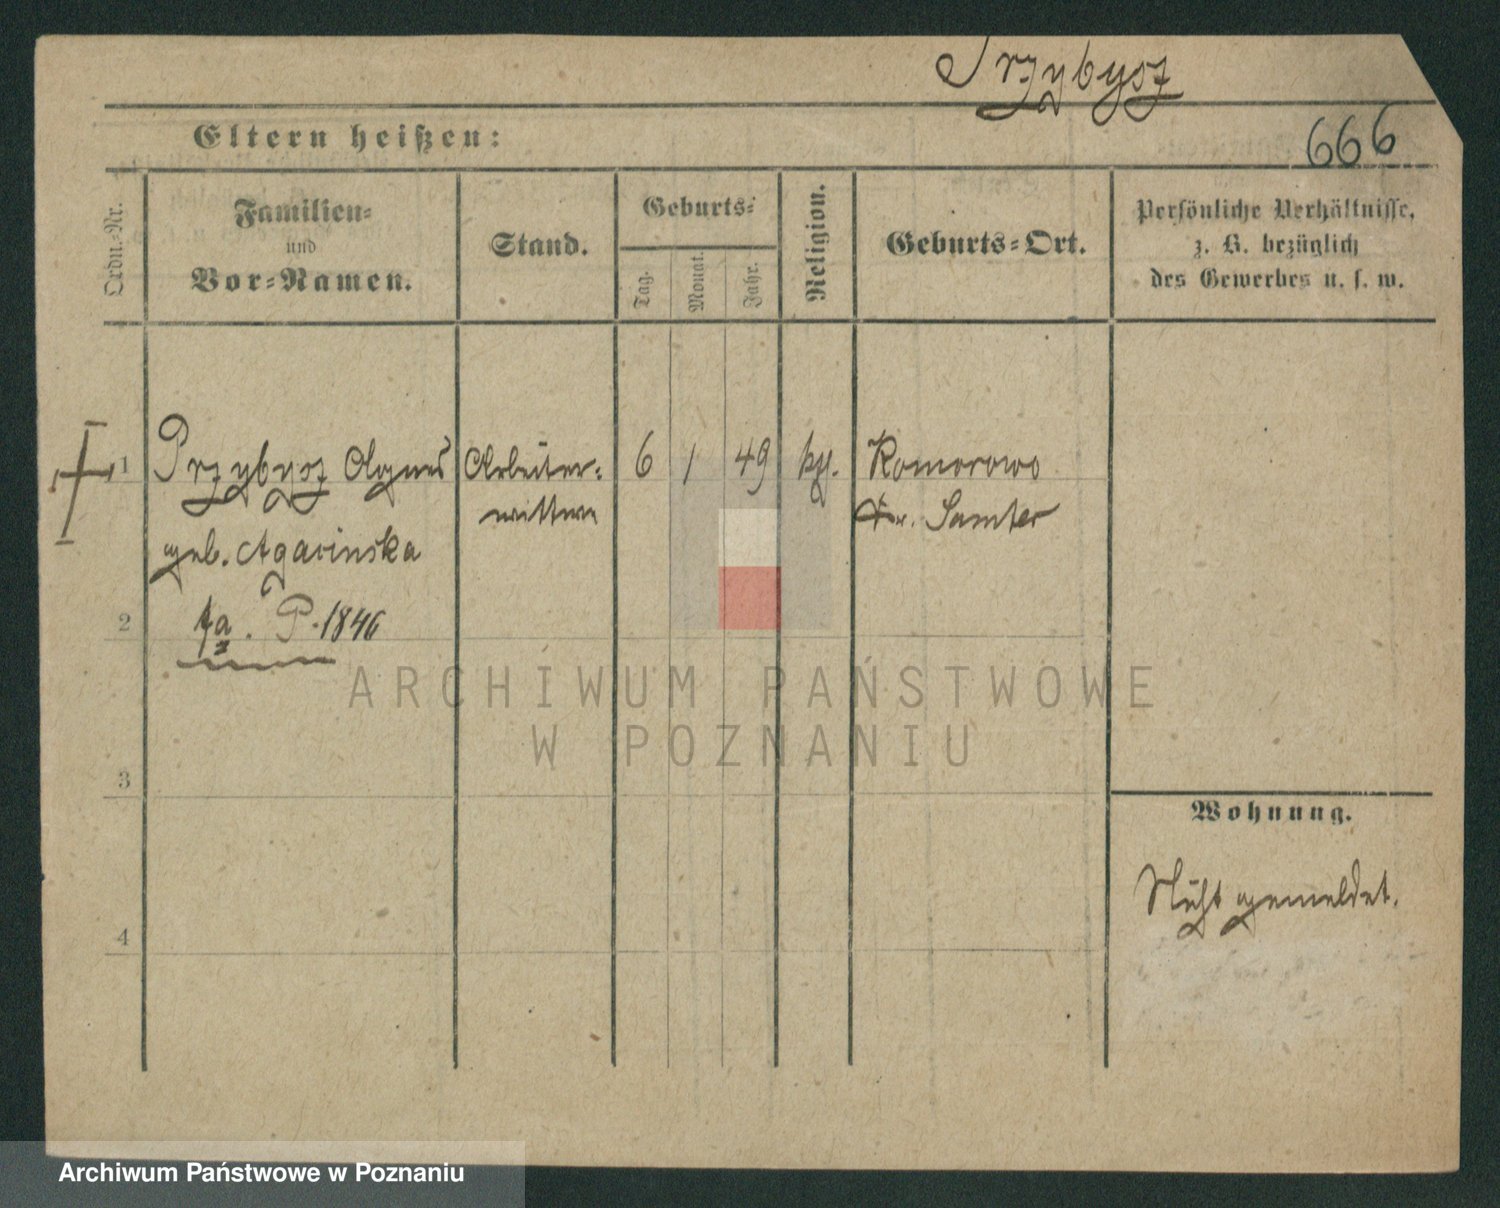 Przybysz
Eltern heißen:
666
Ordn.-Nr.
Familien-
und
Vor-Namen.
Stand.
Geburts-
Tag.
Monat.
Jahr.
Religion.
Geburts-Ort.
Persönliche Verhältnisse,
z. B. bezüglich
des Gewerbes u. s. w.
1 Przybysz Agnes Arbeiter- 6 1 49 Komorowo
wittwe Kr. Samter
geb. Agacinska
2 P. 1846
ARCHIWUM PAŃSTWOWE
W POZNANIU
3
Wohnung.
Nicht gemeldet.
4
Archiwum Państwowe w Poznaniu